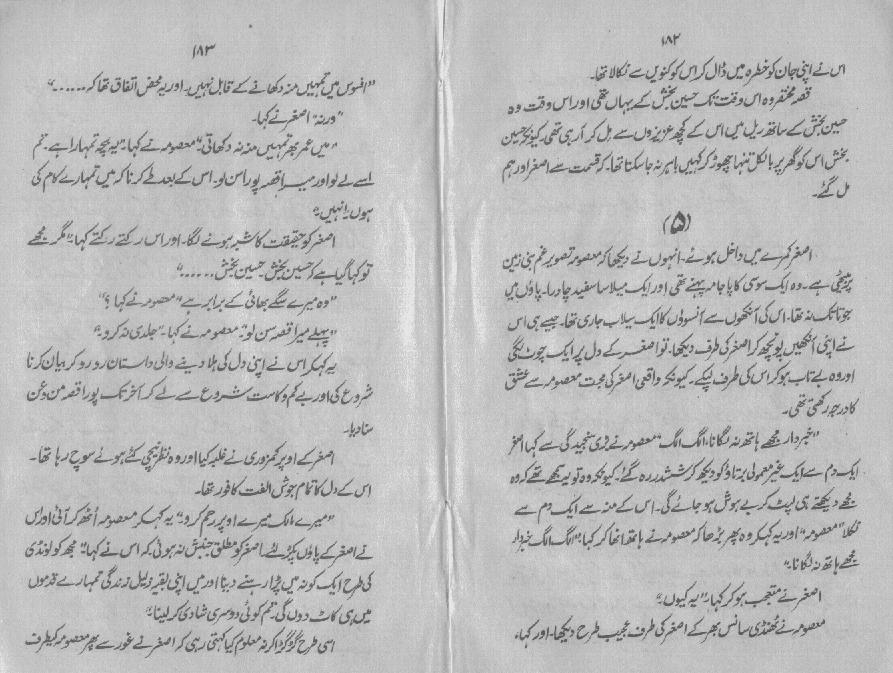 ۱۸۲
اس نے اپنی جان کو خطرہ میں ڈال کر اس کو کنویں سے نکالا تھا۔
قصہ مختصر وہ اس وقت تک حسین بخش کے یہاں تھی اور اس وقت وہ
حسین بخش کے ساتھ ریل میں اس کے کچھ عزیزوں سے مل کر آ رہی تھی۔ کیونکہ حسین
بخش اس کو گھر پر بالکل تنہا چھوڑ کر کہیں باہر نہ جا سکتا تھا۔ کہ قسمت سے اصغر اور ہم
مل گئے۔
(۵)
اصغر کمرے میں داخل ہوئے۔ انہوں نے دیکھا کہ معصومہ تصویر غم بنی زمین
پر بیٹھی ہے۔ وہ ایک سوسی کا پاجامہ پہنے تھی اور ایک میلا سا سفید چادرا۔ پاؤں میں
جوتا تک نہ تھا۔ اس کی آنکھوں سے آنسوؤں کا ایک سیلاب جاری تھا۔ جیسے ہی اس
نے اپنی آنکھیں پونچھ کر اصغر کی طرف دیکھا۔ تو اصغر کے دل پر ایک چوٹ لگی
اور وہ بے تاب ہو کر اس کی طرف لپکے۔ کیونکہ واقعی اصغر کی محبت معصومہ سے عشق
کا درجہ رکھتی تھی۔
"خبردار مجھے ہاتھ نہ لگانا، الگ الگ" معصومہ نے بڑی سنجیدگی سے کہا اصغر
ایک دم سے ایک غیر معمولی برتاؤ کو دیکھ کر ششدر رہ گئے! کیونکہ وہ تو یہ سمجھے تھے کہ وہ
مجھے دیکھتے ہی لپٹ کر بے ہوش ہو جائے گی۔ اس کے منہ سے ایک دم سے
نکلا "معصومہ" اور یہ کہہ کر وہ پھر بڑھا کہ معصومہ نے ہاتھ اٹھا کر کہا: "الگ الگ خبردار
مجھے ہاتھ نہ لگانا۔"
اصغر نے متعجب ہو کر کہا: "یہ کیوں۔"
معصومہ نے ٹھنڈی سانس بھر کے اصغر کی طرف عجیب طرح دیکھا۔ اور کہا،
۱۸۳
"افسوس میں تمہیں منہ دکھانے کے قابل نہیں۔ اور یہ محض اتفاق تھا کہ ......"
"ورنہ" اصغر نے کہا۔
"میں عمر بھر تمہیں منہ نہ دکھاتی۔" معصومہ نے کہا۔ "یہ بچہ تمہارا ہے۔ تم
اسے لے لو اور میرا قصہ پورا سن لو۔ اس کے بعد طے کرنا کہ میں تمہارے کام کی
ہوں یا نہیں۔"
اصغر کو حقیقت کا شبہ ہونے لگا۔ اور اس رکتے رکتے کہا: "مگر مجھے
تو کہا گیا ہے کہ حسین بخش حسین بخش ......"
"وہ میرے سگے بھائی کے برابر ہے" معصومہ نے کہا؟"
"پہلے میرا قصہ سن لو۔" معصومہ نے کہا۔ "جلدی نہ کرو۔"
یہ کہہ کر اس نے اپنی دل کی ہلا دینے والی داستان رو رو کر بیان کرنا
شروع کی اور بے کم و کاست شروع سے لے کر آخر تک پورا قصہ من و عن
سنا دیا۔
اصغر کے اوپر کمزوری نے غلبہ کیا اور وہ نظر نیچی کئے ہوئے سوچ رہا تھا۔
اس کے دل کا تمام جوش الفت کافور تھا۔
"میرے مالک میرے اوپر رحم کرو۔" یہ کہہ کر معصومہ اٹھ کر آئی اور اس
نے اصغر کے پاؤں پکڑ لئے۔ اصغر کو مطلق جنبش نہ ہوئی کہ اس نے کہا: "مجھ کو لونڈی
کی طرح ایک کونہ میں پڑا رہنے دینا اور میں اپنی بقیہ ذلیل زندگی تمہارے قدموں
میں ہی کاٹ دوں گی۔ تم کوئی دوسری شادی کر لینا۔"
اسی طرح گڑگڑا کر نہ معلوم کیا کہتی رہی کہ اصغر نے غور سے پھر معصومہ کیطرف